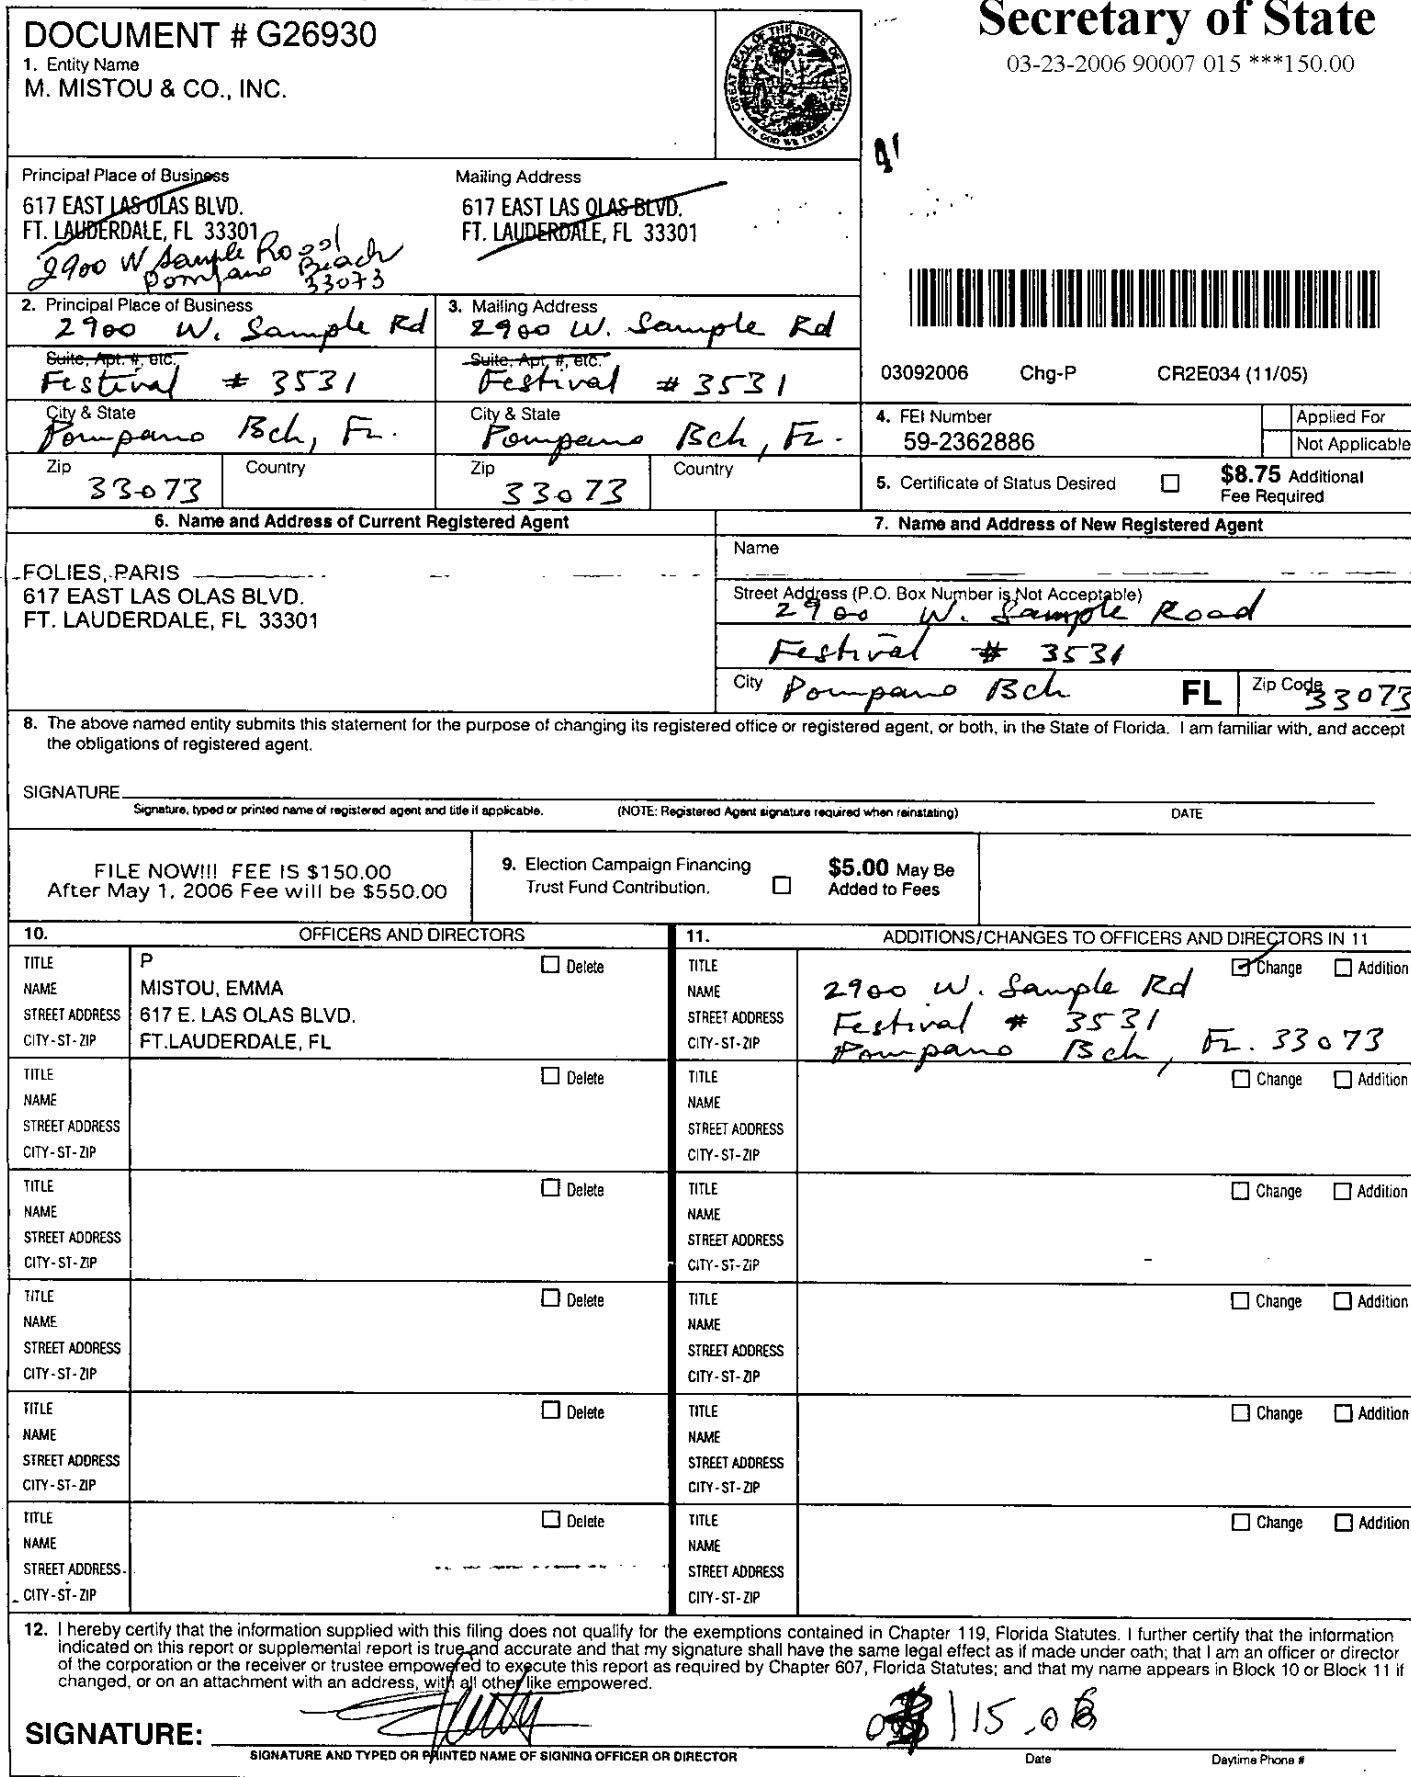 DOCUMENT # G26930
1. Entity Name
M. MISTOU & CO., INC.
GREAT SEAL OF THE STATE OF FLORIDA
IN GOD WE TRUST
Secretary of State
03-23-2006 90007 015 ***150.00
Principal Place of Business
617 EAST LAS OLAS BLVD.
FT. LAUDERDALE, FL 33301
2900 W Sample Road
Pompano Beach
33073
Mailing Address
617 EAST LAS OLAS BLVD.
FT. LAUDERDALE, FL 33301
2. Principal Place of Business
2900 W. Sample Rd
Suite, Apt. #, etc.
Festival # 3531
City & State
Pompano Bch, FL.
Zip
33073
Country
3. Mailing Address
2900 W. Sample Rd
Suite, Apt. #, etc.
Festival # 3531
City & State
Pompano Bch, FL.
Zip
33073
Country
03092006 Chg-P CR2E034 (11/05)
4. FEI Number
59-2362886
Applied For
Not Applicable
5. Certificate of Status Desired
$8.75 Additional
Fee Required
6. Name and Address of Current Registered Agent
FOLIES, PARIS
617 EAST LAS OLAS BLVD.
FT. LAUDERDALE, FL 33301
7. Name and Address of New Registered Agent
Name
Street Address (P.O. Box Number is Not Acceptable)
2900 W. Sample Road
Festival # 3531
City Pompano Bch FL Zip Code 33073
8. The above named entity submits this statement for the purpose of changing its registered office or registered agent, or both, in the State of Florida. I am familiar with, and accept
the obligations of registered agent.
SIGNATURE
Signature, typed or printed name of registered agent and title if applicable. (NOTE: Registered Agent signature required when reinstating) DATE
FILE NOW!!! FEE IS $150.00
After May 1, 2006 Fee will be $550.00
9. Election Campaign Financing
Trust Fund Contribution.
$5.00 May Be
Added to Fees
10. OFFICERS AND DIRECTORS
11. ADDITIONS/CHANGES TO OFFICERS AND DIRECTORS IN 11
TITLE P Delete
NAME MISTOU, EMMA
STREET ADDRESS 617 E. LAS OLAS BLVD.
CITY-ST-ZIP FT.LAUDERDALE, FL
TITLE Change Addition
NAME 2900 W. Sample Rd
STREET ADDRESS Festival # 3531
CITY-ST-ZIP Pompano Bch, FL. 33073
TITLE Delete
NAME
STREET ADDRESS
CITY-ST-ZIP
TITLE Change Addition
NAME
STREET ADDRESS
CITY-ST-ZIP
TITLE Delete
NAME
STREET ADDRESS
CITY-ST-ZIP
TITLE Change Addition
NAME
STREET ADDRESS
CITY-ST-ZIP
TITLE Delete
NAME
STREET ADDRESS
CITY-ST-ZIP
TITLE Change Addition
NAME
STREET ADDRESS
CITY-ST-ZIP
TITLE Delete
NAME
STREET ADDRESS
CITY-ST-ZIP
TITLE Change Addition
NAME
STREET ADDRESS
CITY-ST-ZIP
TITLE Delete
NAME
STREET ADDRESS
CITY-ST-ZIP
TITLE Change Addition
NAME
STREET ADDRESS
CITY-ST-ZIP
12. I hereby certify that the information supplied with this filing does not qualify for the exemptions contained in Chapter 119, Florida Statutes. I further certify that the information
indicated on this report or supplemental report is true and accurate and that my signature shall have the same legal effect as if made under oath; that I am an officer or director
of the corporation or the receiver or trustee empowered to execute this report as required by Chapter 607, Florida Statutes; and that my name appears in Block 10 or Block 11 if
changed, or on an attachment with an address, with all other like empowered.
SIGNATURE:
SIGNATURE AND TYPED OR PRINTED NAME OF SIGNING OFFICER OR DIRECTOR Date Daytime Phone #